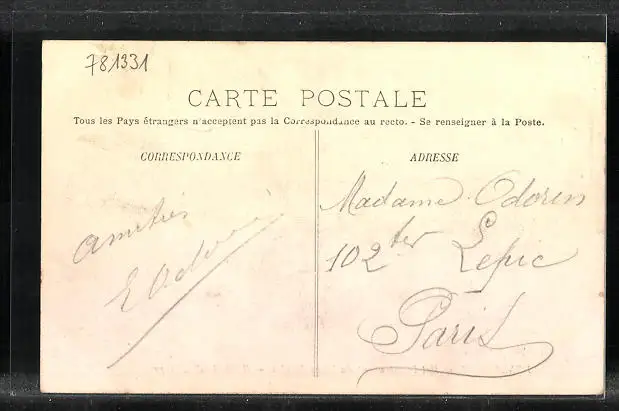 781331
CARTE POSTALE
Tous les Pays étrangers n'acceptent pas la Correspondance au recto. - Se renseigner à la Poste.
CORRESPONDANCE
Amitiés
E Odorin
ADRESSE
Madame Odorin
102 ter Lepic
Paris